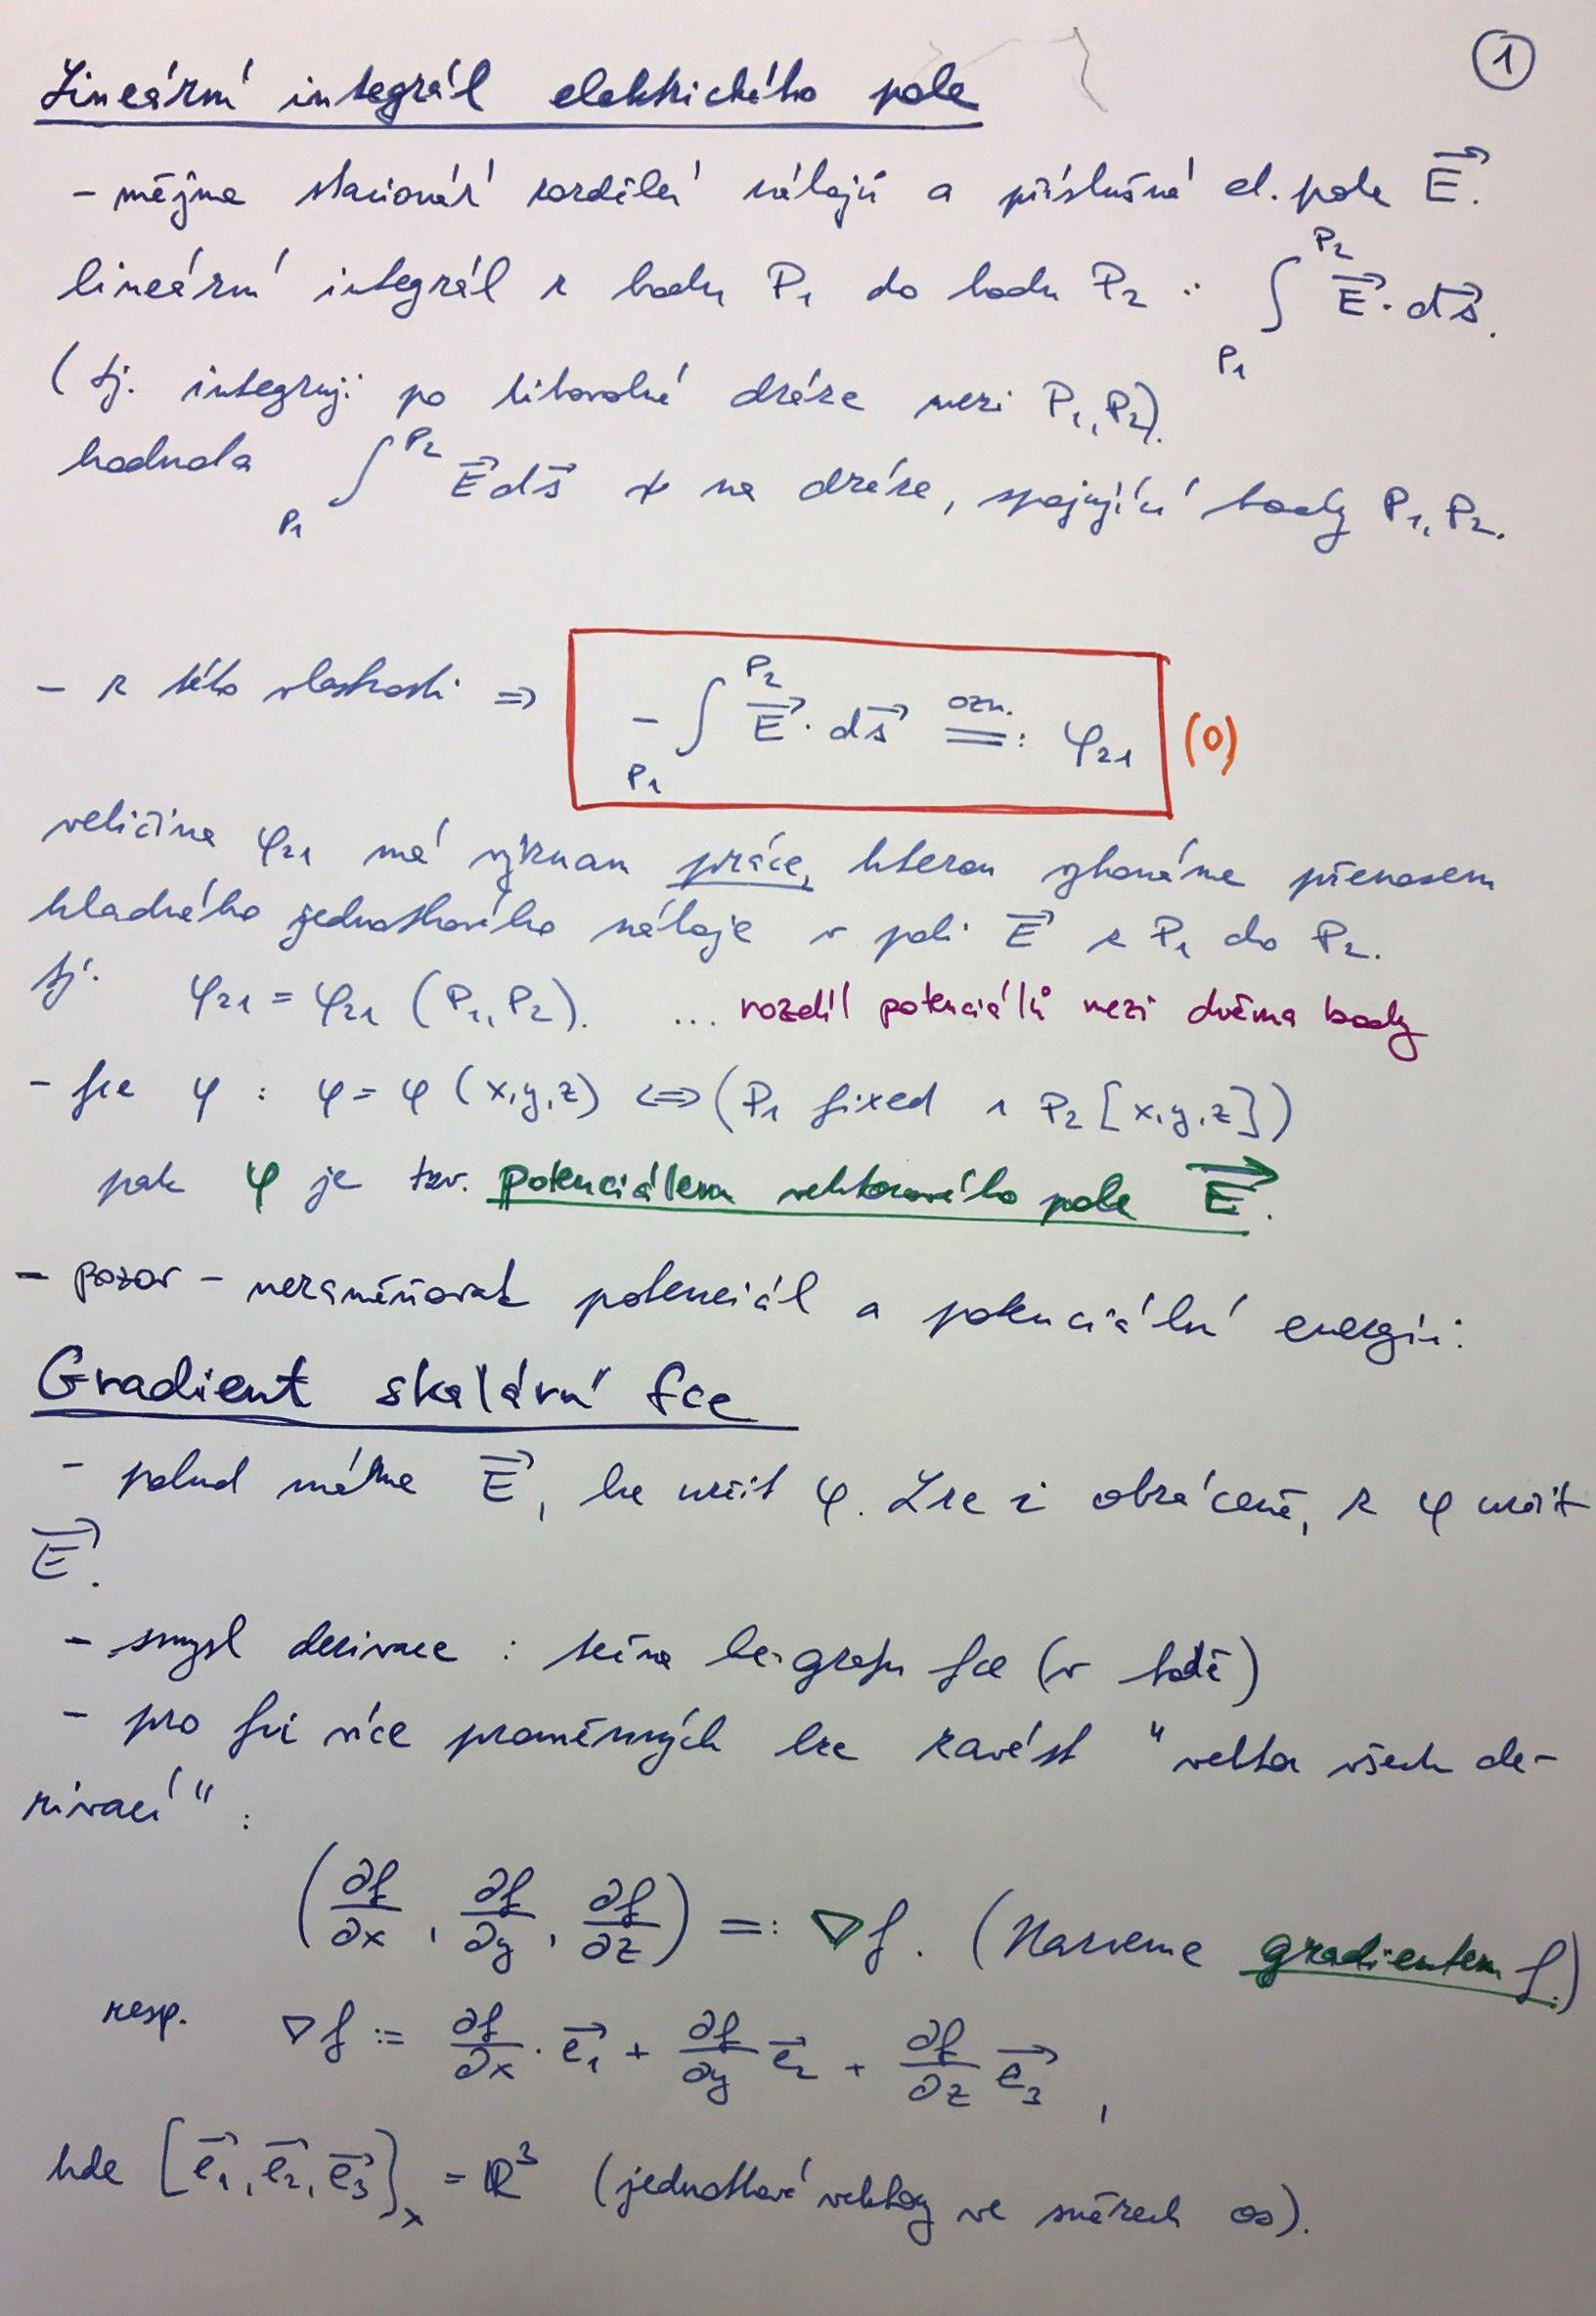 1
Lineární integrál elektrického pole
- mějme stacionár' rozdělení nábojů a příslušné el. pole E⃗.
lineární integrál z bodu P₁ do bodu P₂ : ∫_{P₁}^{P₂} E⃗·ds⃗.
(tj. integruji po libovolné dráze mezi P₁, P₂).
hodnota ∫_{P₁}^{P₂} E⃗ds⃗ na dráze, spojující body P₁, P₂.
- z této vlastnosti ⇒ -∫_{P₁}^{P₂} E⃗·ds⃗ =: ozn. φ₂₁ (0)
veličina φ₂₁ má význam práce, kterou vykonáme přenosem
kladného jednotkového náboje v poli E⃗ z P₁ do P₂.
tj. φ₂₁ = φ₂₁ (P₁, P₂). ... rozdíl potenciálů mezi dvěma body
- fce φ : φ = φ (x,y,z) ⇔ (P₁ fixed ∧ P₂ [x,y,z])
pak φ je tzv. potenciálem vektorového pole E⃗.
- pozor - nezaměňovat potenciál a potenciální energii!
Gradient skalární fce
- pokud máme E⃗, lze určit φ. Lze i obráceně, z φ určit
E⃗.
- smysl derivace : tečna ke grafu fce (v bodě)
- pro fci více proměnných lze zavést "vektor všech de-
rivací" :
(∂f/∂x, ∂f/∂y, ∂f/∂z) =: ∇f. (Nazveme gradientem f.)
resp. ∇f := ∂f/∂x · e⃗₁ + ∂f/∂y e⃗₂ + ∂f/∂z e⃗₃ ,
kde [e⃗₁, e⃗₂, e⃗₃]_λ = ℝ³ (jednotkové vektory ve směrech os).